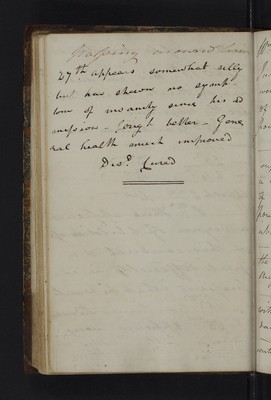 27th appears somewhat silly
but has shewn no symp
tom of insanity since his ad
mission - Cough better - Gene
ral health much improved
Disd. Cured